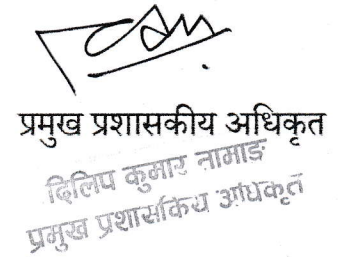 प्रमुख प्रशासकीय अधिकृत
दिलिप कुमार नामाङ
प्रमुख प्रशासकिय अधिकृत